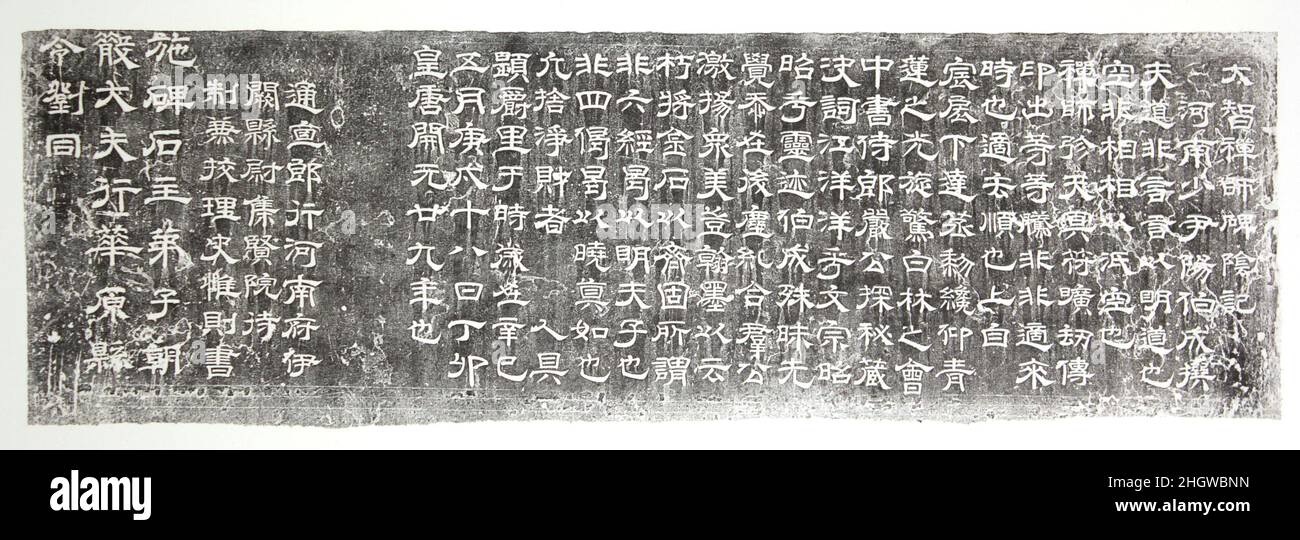 大智禪師碑陰記
河南少尹陽伯成撰
夫道非言言以明道也
空非相相以泯空也
禪師冥符曠劫傳
印出等等騰非非適來
時也適去順也上自
宸扆下達蒸黎纔仰青
蓮之光旋驚白林之會
中書侍郎嚴公探秘藏
決詞江洋洋乎文宗昭
昭乎靈迹伯成殊昧先
覺忝在後塵合羣公
激揚衆美登翰墨以云
朽將金石以齊固所謂
非六經曷以明夫子也
非四偈曷以曉真如也
允捨淨財者 人具
題爵里于時歲在辛巳
五月庚戌十八日丁卯
皇唐開元廿九年也
通直郎行河南府伊
闕縣尉集賢院待
制兼挍理史惟則書
施碑石主弟子朝
散大夫行華原縣
令劉同
alamy
Image ID: 2HGWBNN
www.alamy.com